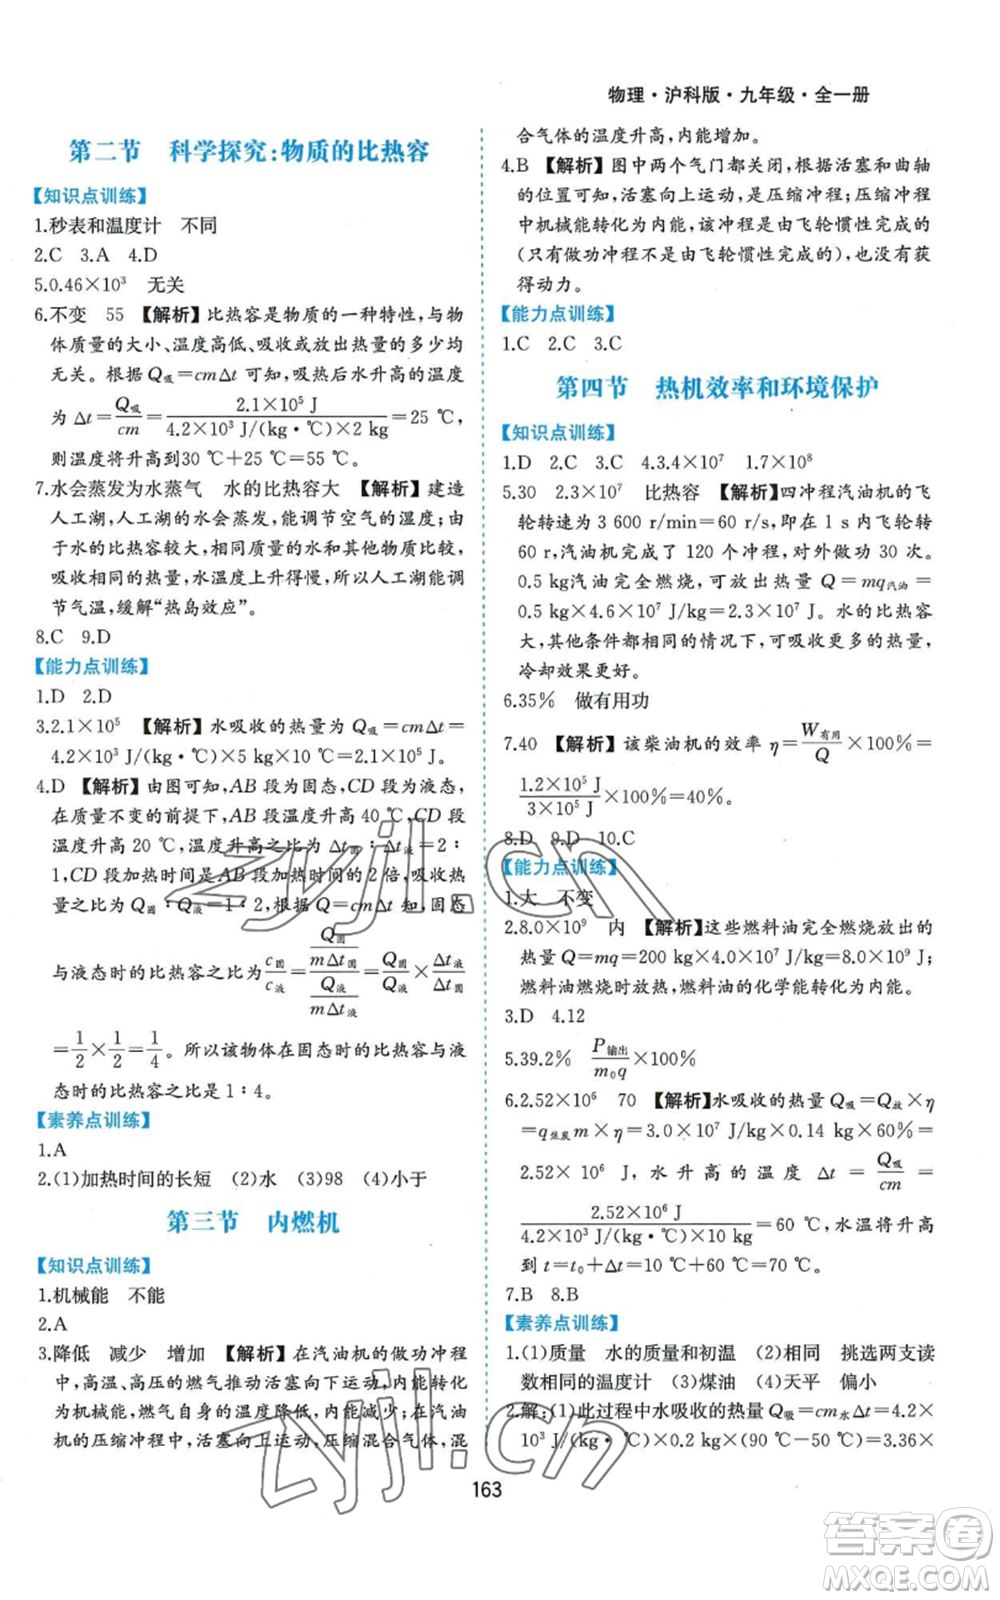 物理·沪科版·九年级·全一册
第二节 科学探究:物质的比热容
【知识点训练】
1.秒表和温度计 不同
2.C 3.A 4.D
5.0.46×10³ 无关
6.不变 55 【解析】比热容是物质的一种特性,与物
体质量的大小、温度高低、吸收或放出热量的多少均
无关。根据 Q吸=cmΔt 可知,吸热后水升高的温度
为 Δt=Q吸/cm=2.1×10⁵ J/(4.2×10³ J/(kg·℃)×2 kg)=25 ℃,
则温度将升高到30 ℃+25 ℃=55 ℃。
7.水会蒸发为水蒸气 水的比热容大 【解析】建造
人工湖,人工湖的水会蒸发,能调节空气的湿度;由
于水的比热容较大,相同质量的水与其他物质比较,
吸收相同的热量,水的温度上升得慢,所以人工湖能调
节气温,缓解“热岛效应”。
8.C 9.D
【能力点训练】
1.D 2.D
3.2.1×10⁵ 【解析】水吸收的热量为 Q吸=cmΔt=
4.2×10³ J/(kg·℃)×5 kg×10 ℃=2.1×10⁵ J。
4.D 【解析】由图可知,AB 段为固态,CD 段为液态,
在质量不变的前提下,AB 段温度升高 40 ℃,CD 段
温度升高 20 ℃,温度升高之比为 Δt固∶Δt液=2∶
1,CD 段加热时间是 AB 段加热时间的 2 倍,吸收热
量之比为 Q固∶Q液=1∶2,根据 Q=cmΔt 知,固态
与液态时的比热容之比为 c固/c液=(Q固/mΔt固)/(Q液/mΔt液)=Q固/Q液×Δt液/Δt固
=1/2×1/2=1/4。所以该物体在固态时的比热容与液
态时的比热容之比是 1∶4。
【素养点训练】
1.A
2.(1)加热时间的长短 (2)水 (3)98 (4)小于
第三节 内燃机
【知识点训练】
1.机械能 不能
2.A
3.降低 减少 增加 【解析】在汽油机的做功冲程
中,高温、高压的燃气推动活塞向下运动,内能转化
为机械能,燃气自身的温度降低,内能减少;在汽油
机的压缩冲程中,活塞向上运动,压缩混合气体,混
合气体的温度升高,内能增加。
4.B 【解析】图中两个气门都关闭,根据活塞和曲轴
的位置可知,活塞向上运动,是压缩冲程,压缩冲程
中机械能转化为内能,该冲程是由飞轮惯性完成的
(只有做功冲程不是由飞轮惯性完成的),从而获
得动力。
【能力点训练】
1.C 2.C 3.C
第四节 热机效率和环境保护
【知识点训练】
1.D 2.C 3.C 4.3.4×10⁷ 1.7×10⁸
5.30 2.3×10⁷ 比热容 【解析】四冲程汽油机的飞
轮转速为 3 600 r/min=60 r/s,即在 1 s 内飞轮转
60 r,汽油机完成了 120 个冲程,对外做功 30 次。
0.5 kg汽油完全燃烧,可放出热量 Q=mq汽油=
0.5 kg×4.6×10⁷ J/kg=2.3×10⁷ J。水的比热容
大,其他条件都相同的情况下,可吸收更多的热量,
冷却效果更好。
6.35% 做有用功
7.40 【解析】该柴油机的效率 η=W有用/Q×100%=
1.2×10⁵ J/3×10⁵ J×100%=40%。
8.D 9.D 10.C
【能力点训练】
1.大 不变
2.8.0×10⁹ 内 【解析】这些燃料油完全燃烧放出的
热量 Q=mq=200 kg×4×10⁷ J/kg=8.0×10⁹ J;
燃料油燃烧时放热,燃料油的化学能转化为内能。
3.D 4.12
5.39.2% P输出/m₀q×100%
6.2.52×10⁶ 70 【解析】水吸收的热量 Q吸=Q放×η
=q焦炭m×η=3.0×10⁷ J/kg×0.14 kg×60%=
2.52×10⁶ J,水升高的温度 Δt=Q吸/cm=
2.52×10⁶ J/(4.2×10³ J/(kg·℃)×10 kg)=60 ℃,水温将升高
到 t=t₀+Δt=10 ℃+60 ℃=70 ℃。
7.B 8.B
【素养点训练】
1.(1)质量 水的质量和初温 (2)相同 挑选两支读
数相同的温度计 (3)煤油 (4)天平 偏小
2.解:(1)此过程中水吸收的热量 Q吸=cm水Δt=4.2×
10³ J/(kg·℃)×0.2 kg×(90 ℃-50 ℃)=3.36×
163
zyjl.cn
zyjl.cn
答案圈
MXQE.COM